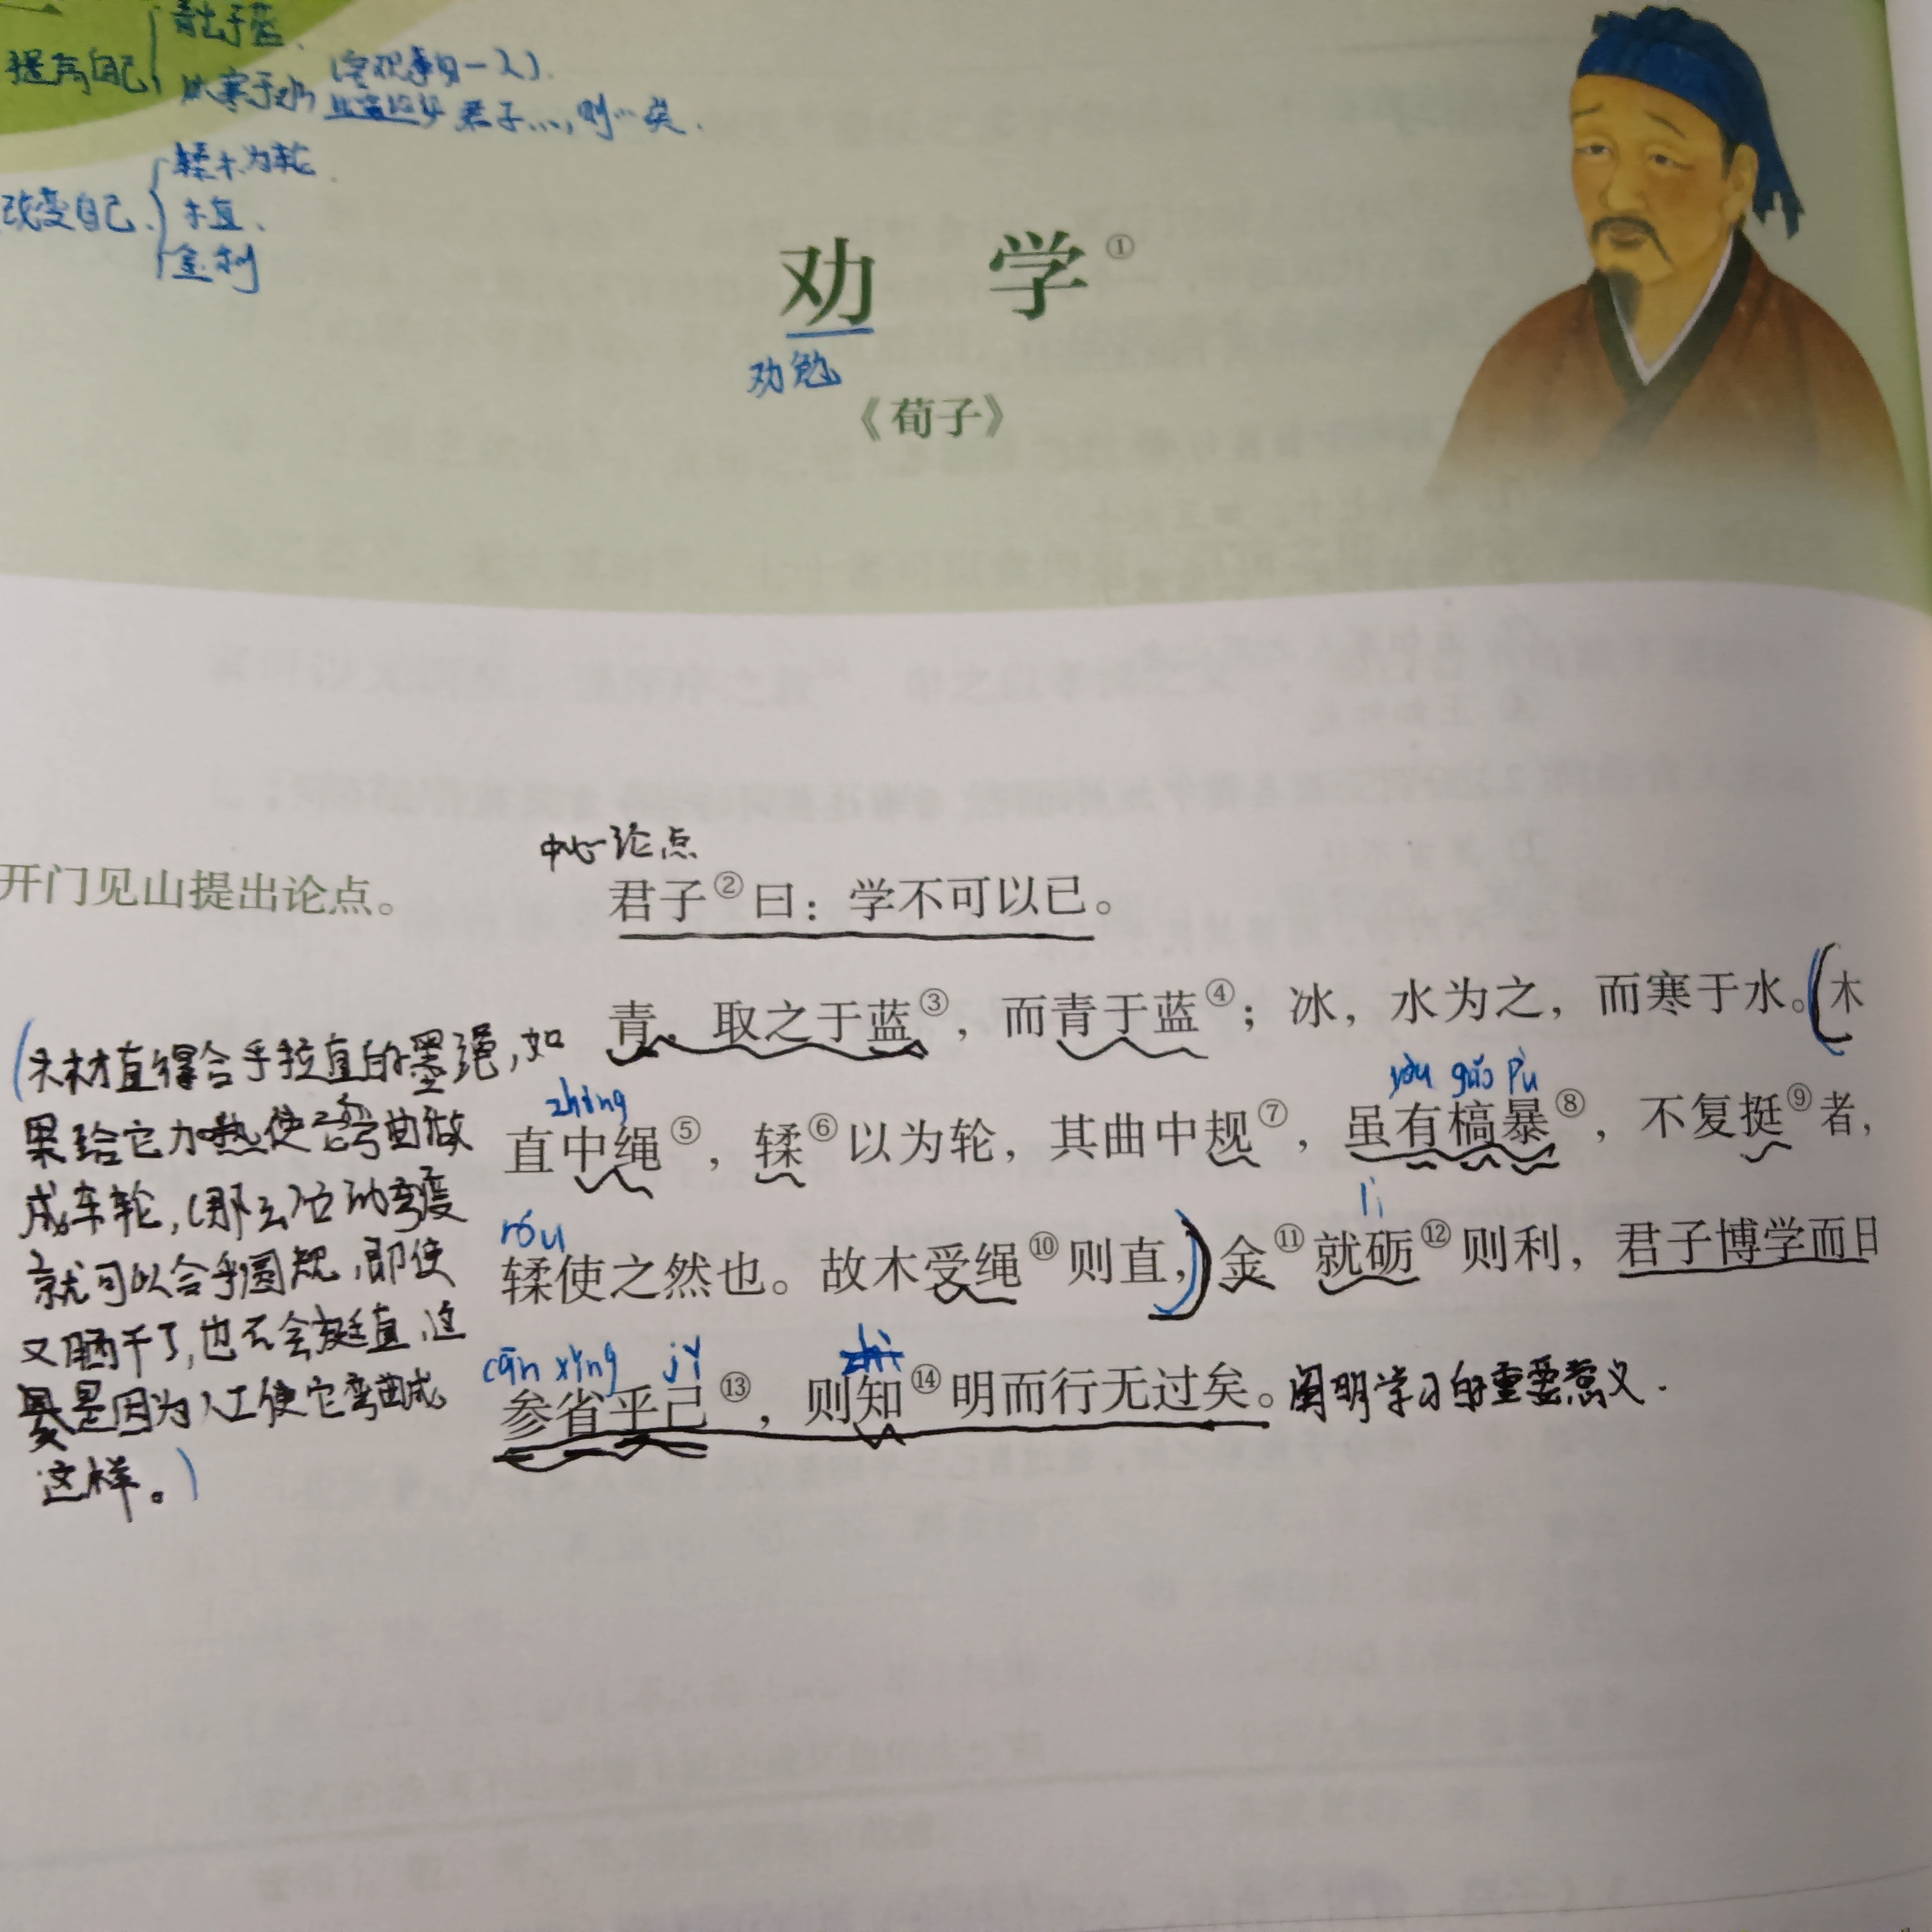 青出于蓝、
提高自己
冰寒于水
君子…,则…矣.
輮木为轮
改变自己.
木直、
金利
劝 学①
劝勉
《荀子》
中心论点
开门见山提出论点。
君子②曰：学不可以已。
青，取之于蓝③，而青于蓝④；冰，水为之，而寒于水。(木
zhòng
yòu gǎo pù
直中绳⑤，輮⑥以为轮，其曲中规⑦，虽有槁暴⑧，不复挺⑨者，
róu
lì
輮使之然也。故木受绳⑩则直，)金⑪就砺⑫则利，君子博学而日
cān xǐng jǐ
zhì
参省乎己⑬，则知⑭明而行无过矣。阐明学习的重要意义.
(木材直得合乎拉直的墨绳,如
果给它加热使它弯曲做
成车轮,(那么)它的弯度
就可以合乎圆规,即使
又晒干了,也不会挺直,这
是因为人工使它弯曲成
这样。)